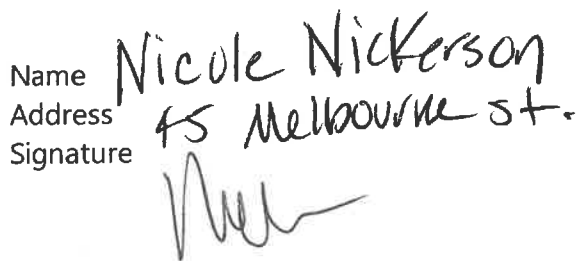 Name Nicole Nickerson
Address 45 Melbourne st.
Signature